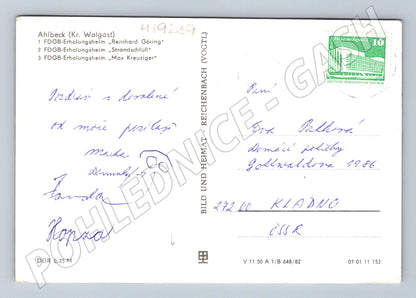 419209
Ahlbeck (Kr. Wolgast)
1 FDGB-Erholungsheim „Bernhard Göring“
2 FDGB-Erholungsheim „Strandschloß“
3 FDGB-Erholungsheim „Max Kreuziger“
Pozdrav z dovolené
od moře posílají
Kopza
DDR 0,25 M
BILD UND HEIMAT REICHENBACH (VOGTL)
10
Paní
Eva
Domácí potřeby
Gottwaldova 1986
272 00 KLADNO
ČSSR
V 11 50 A 1/B 648/82
01 01 11 153
POHLEDNICE - GACH